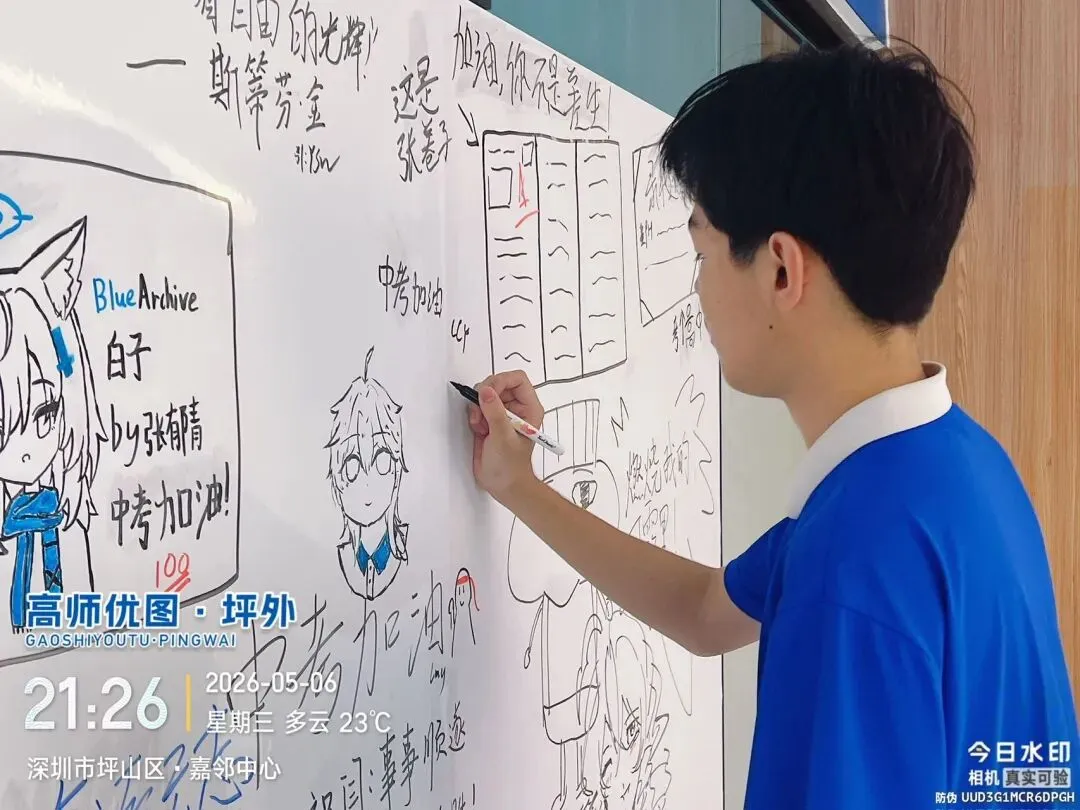 有自由的光辉!
— 斯蒂芬·金
这是
张卷子
加油,你不是差生
中考加油
BlueArchive
白子
by张郁晴
中考加油!
100
燃烧我的
中考加油
lmy
事事顺遂
高师优图·坪外
GAOSHIYOUTU·PINGWAI
21:26
2026-05-06
星期三 多云 23℃
深圳市坪山区·嘉邻中心
今日水印
相机 真实可验
防伪 UUD3G1MCR6DPGH